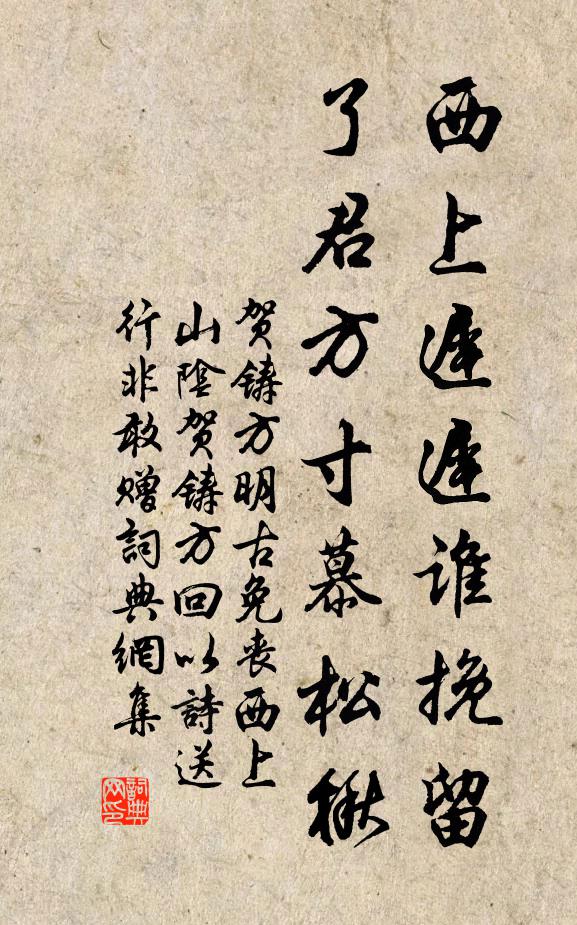 西上遲遲谁挽留
了君方寸慕松楸
贺鑄方明古免丧西上
山陰贺鑄方回以詩送
行非敢赠詞典網集
詞典网印